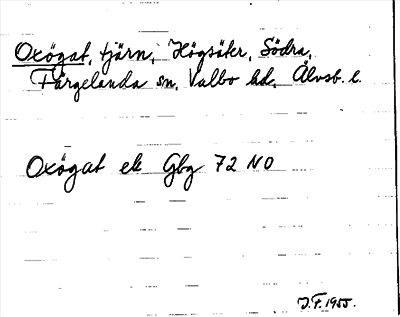 Oxögat, tjärn, Högsäter, Södra,
Färgelanda sn, Valbo hd, Älvsb. l.
Oxögat ek Gbg 72 NO
J.F. 1955.